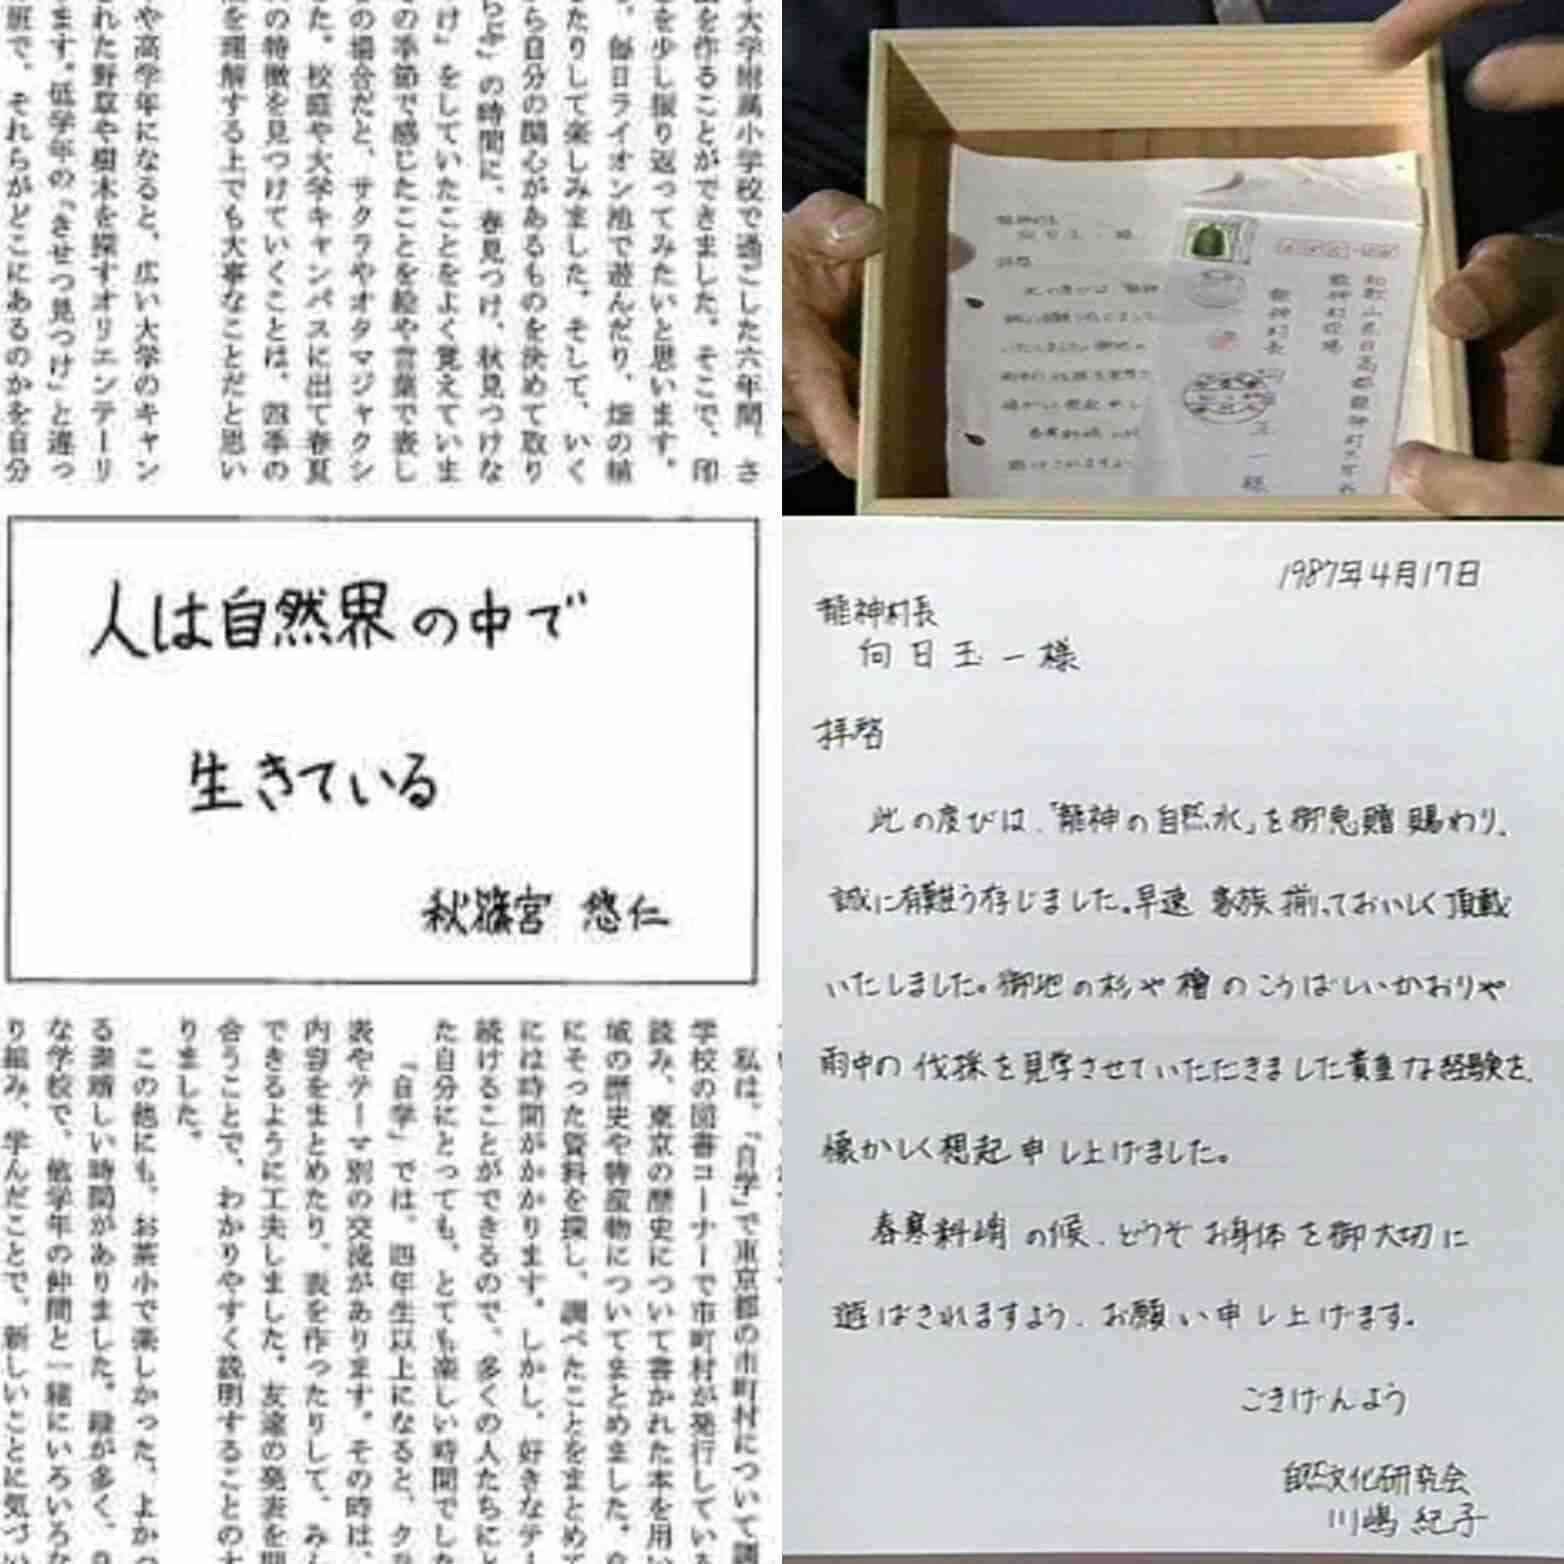 大学附属小学校で過ごした六年間、さ
を作ることができました。そこで、印
を少し振り返ってみたいと思います。
毎日ライオン池で遊んだり、畑の植
たりして楽しみました。そして、いく
ら自分の関心があるものを決めて取り
の時間に、春見つけ、秋見つけな
け』をしていたことをよく覚えていま
の季節で感じたことを絵や言葉で表し
の場合だと、サクラやオタマジャクシ
た。校庭や大学キャンパスに出て春夏
の特徴を見つけていくことは、四季の
を理解する上でも大事なことだと思い
や高学年になると、広い大学のキャン
れた野草や樹木を探すオリエンテーリ
ます。低学年の『きせつ見つけ』と違っ
班で、それらがどこにあるのかを自分
人は自然界の中で
生きている
秋篠宮 悠仁
私は、『自学』で東京都の市町村について調
学校の図書コーナーで市町村が発行している
読み、東京の歴史について書かれた本を用い
域の歴史や特産物についてまとめました。
にそった資料を探し、調べたことをまとめて
には時間がかかります。しかし、好きなテー
続けることができるので、多くの人たちにと
た自分にとっても、とても楽しい時間でした
『自学』では、四年生以上になると、クラ
表やテーマ別の交流があります。その時は、
内容をまとめたり、表を作ったりして、みん
できるように工夫しました。友達の発表を聞
合うことで、わかりやすく説明することの大
りました。
この他にも、お茶小で楽しかった、よかっ
る素晴しい時間がありました。緑が多く、
な学校で、他学年の仲間と一緒にいろいろな
り組み、学んだことで、新しいことに気づい
和歌山県日高郡龍神村
龍神村役場
龍神村長
玉一様
1987年4月17日
龍神村長
向日玉一様
拝啓
此の度びは、「龍神の自然水」を御恵贈賜わり、
誠に有難う存じました。早速家族揃っておいしく頂戴
いたしました。御地の杉や檜のこうばしいかおりや
雨中の伐採を見学させていただきました貴重な経験を、
懐かしく想起申し上げました。
春寒料峭の候、どうぞお身体を御大切に
遊ばされますよう、お願い申し上げます。
ごきげんよう
自然文化研究会
川嶋紀子